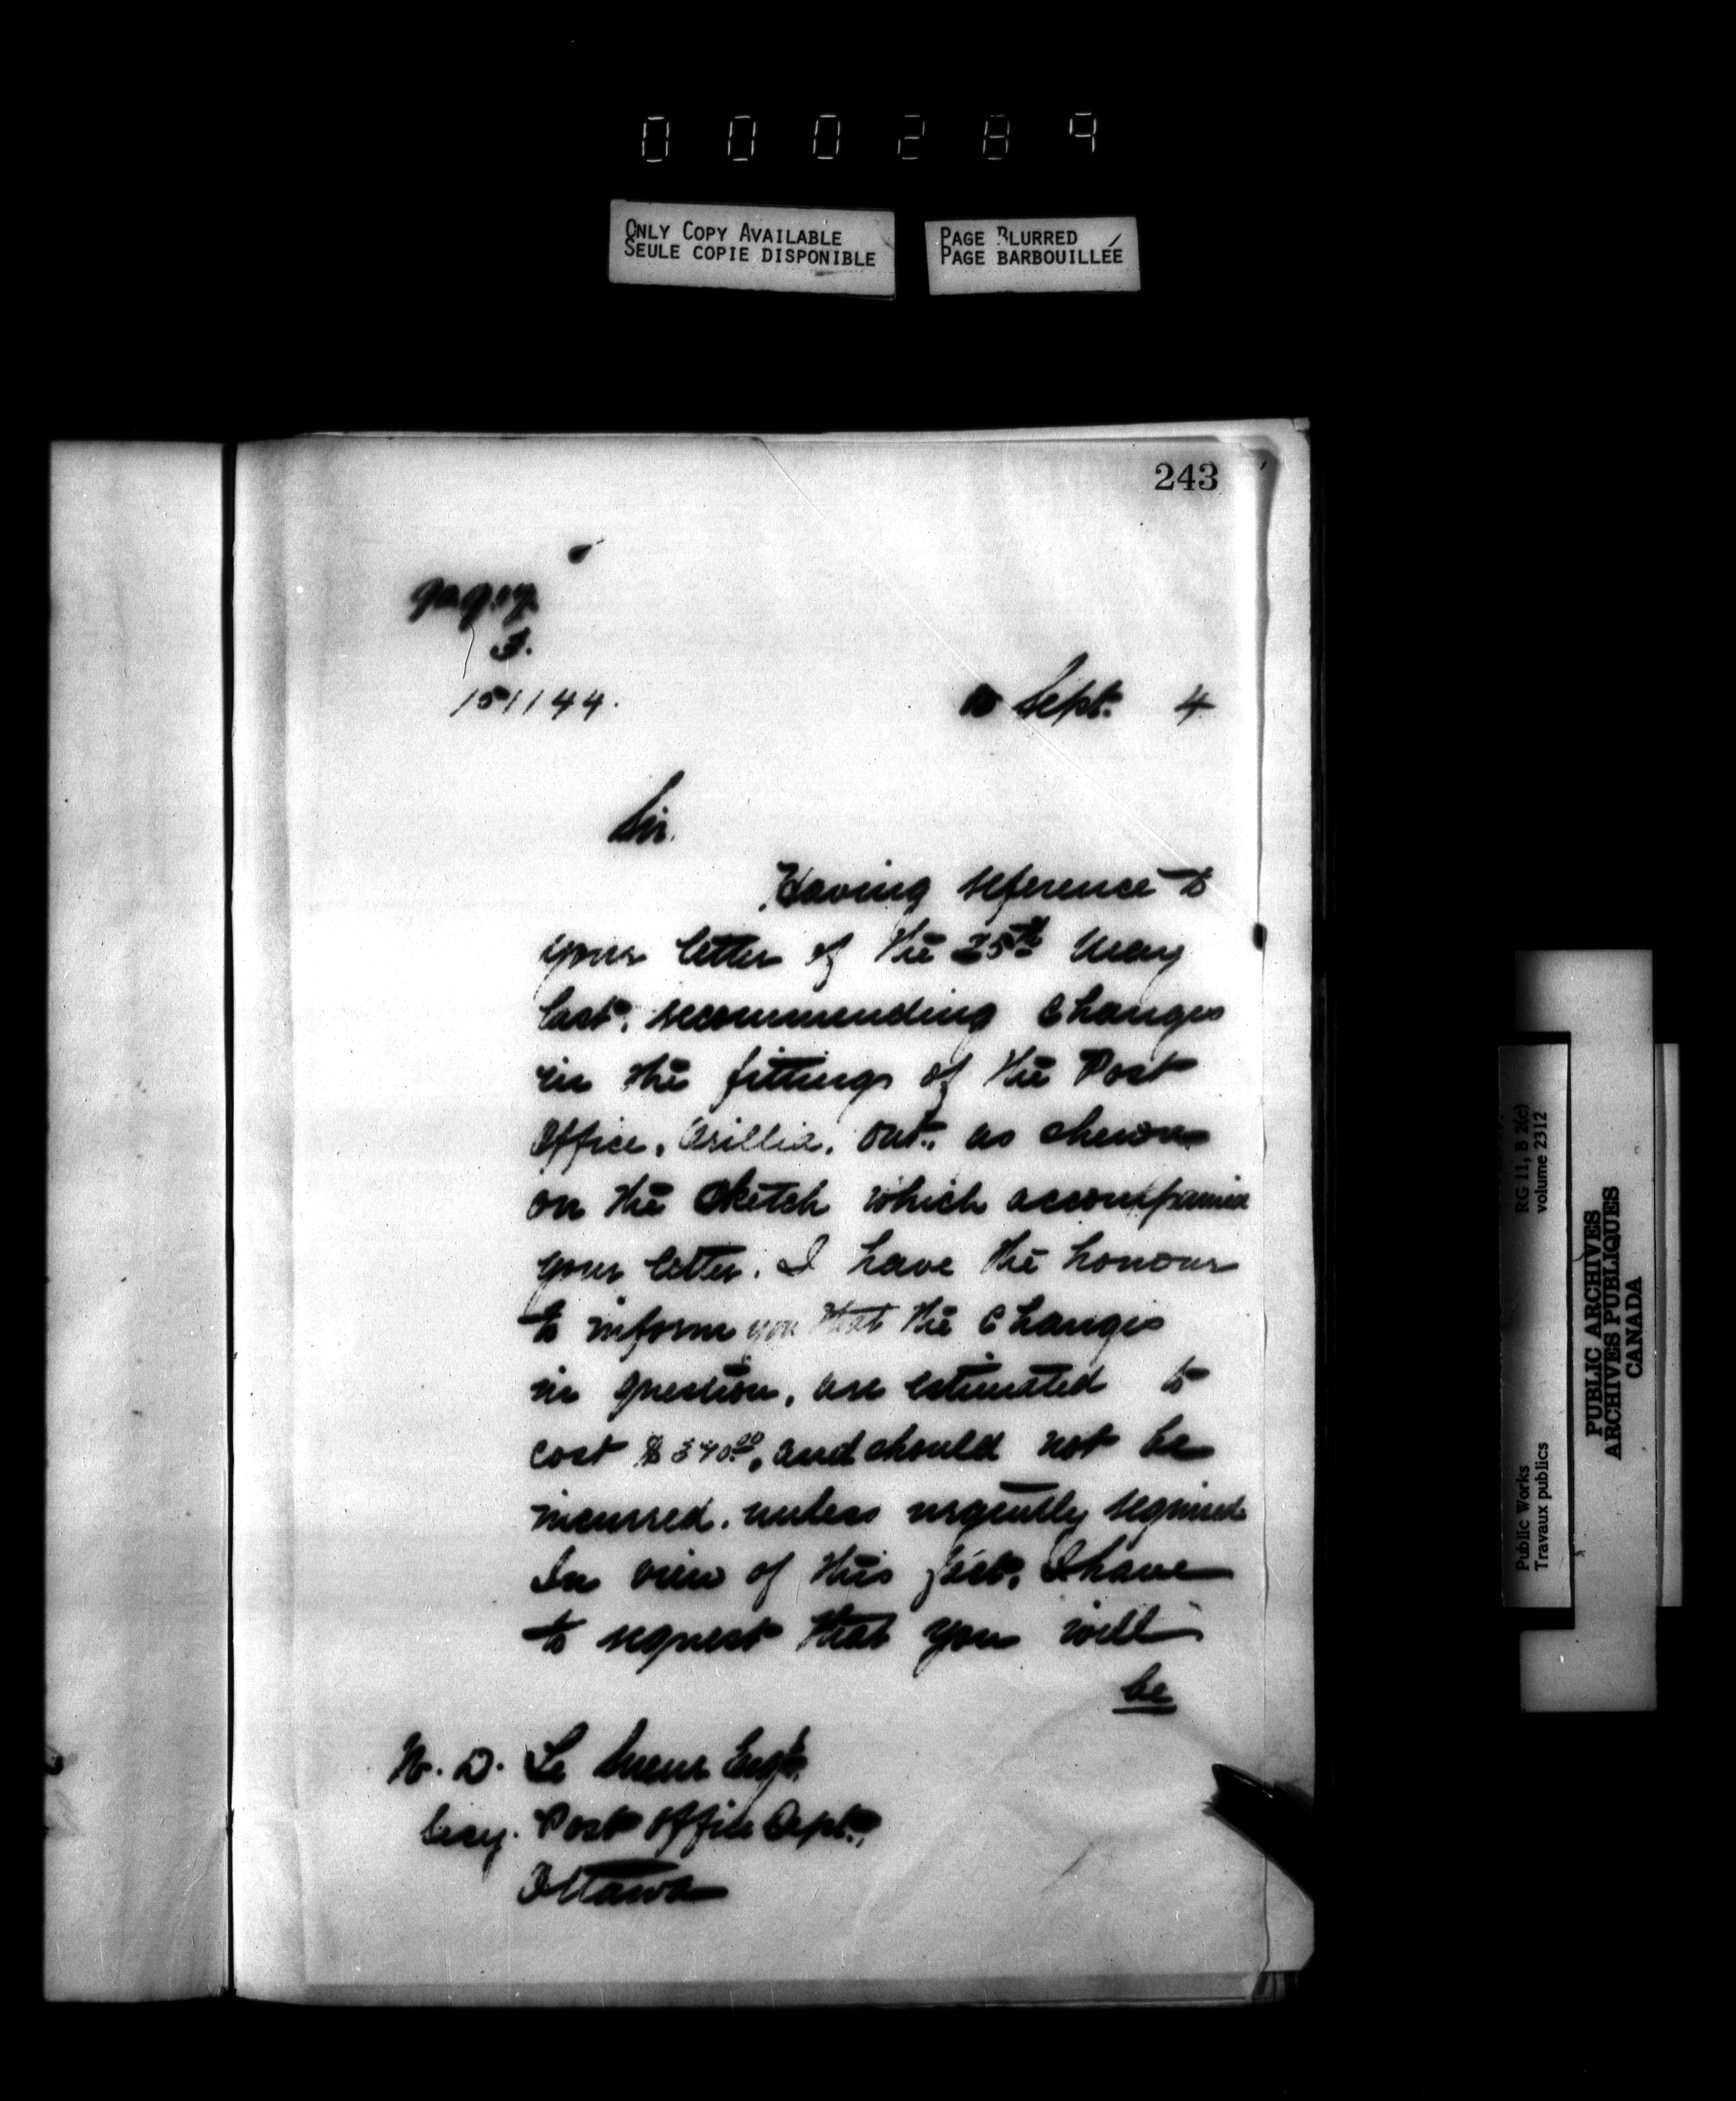 000289
ONLY COPY AVAILABLE
SEULE COPIE DISPONIBLE
PAGE BLURRED
PAGE BARBOUILLÉE
243
151144.
10 Sept. 4
Sir.
Having reference to
your letter of the 25th May
last, recommending changes
in the fittings of the Post
Office, Orillia, Ont., as shewn
on the sketch which accompanied
your letter. I have the honour
to inform you that the changes
in question, are estimated to
cost $340.00, and should not be
incurred, unless urgently required.
In view of this fact, I have
to request that you will
be
W. D. Le Sueur Esq.
Secy. Post Office Dept.,
Ottawa
Public Works
Travaux publics
RG 11, B 2(c)
volume 2312
PUBLIC ARCHIVES
ARCHIVES PUBLIQUES
CANADA